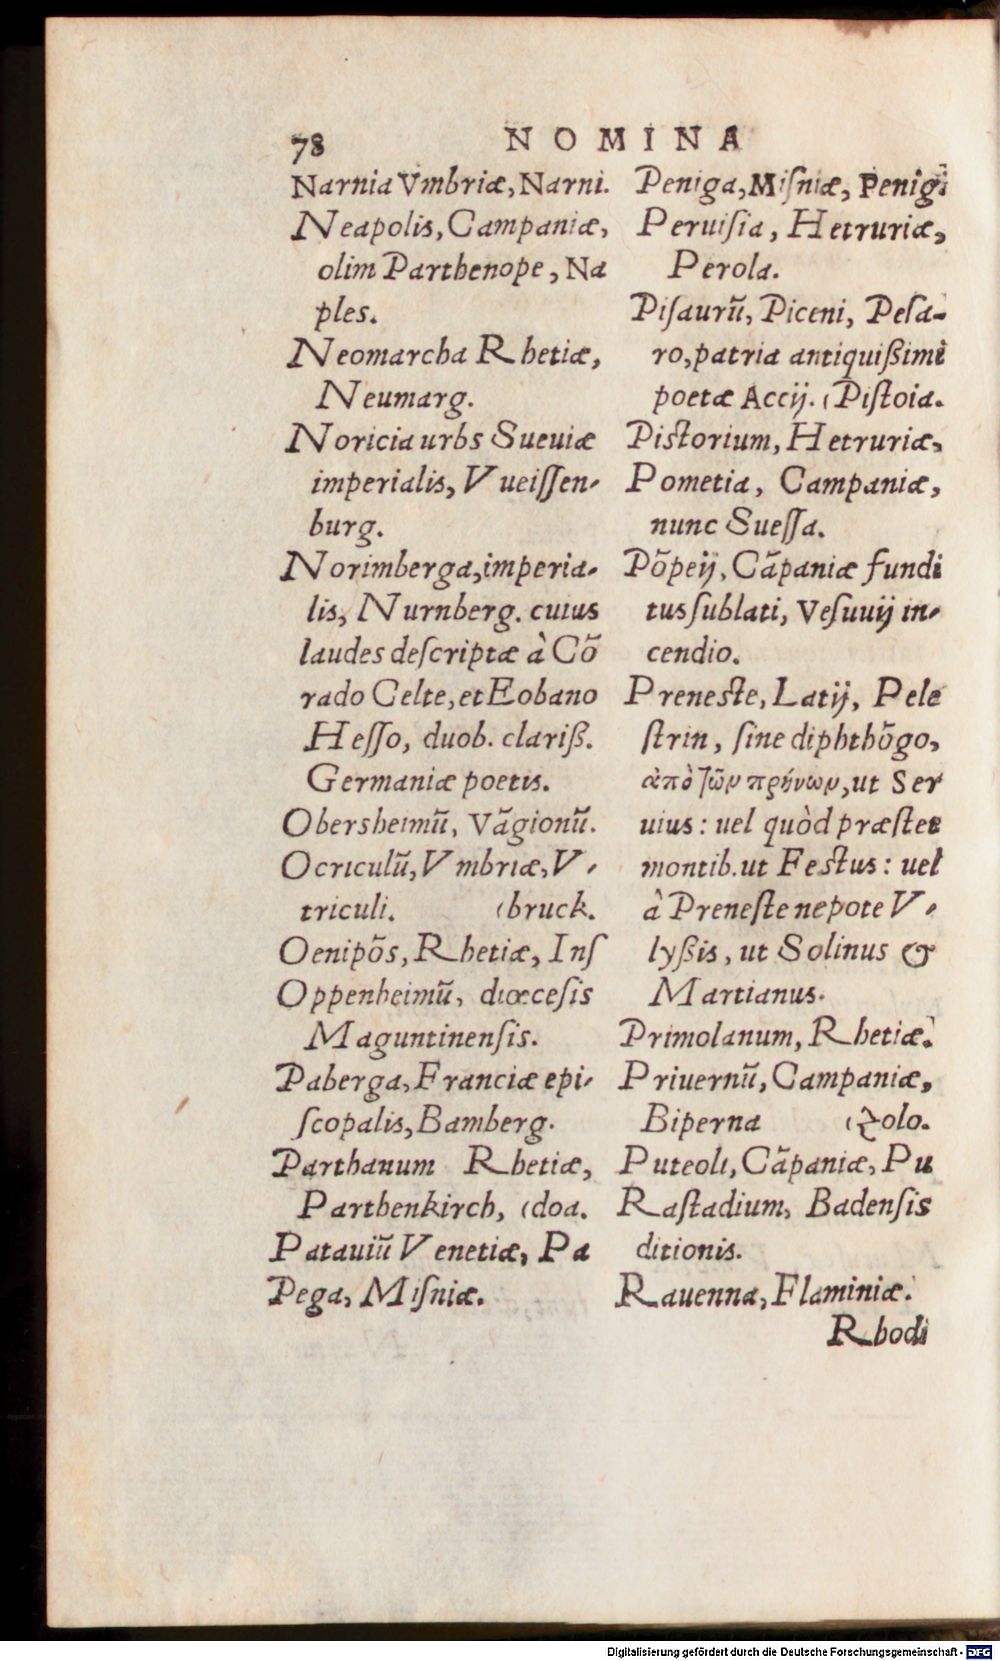 78 NOMINA
Narnia Vmbriæ, Narni.
Neapolis, Campaniæ,
olim Parthenope, Na
ples.
Neomarcha Rhetiæ,
Neumarg.
Noricia urbs Sueuiæ
imperialis, Vueiſſen-
burg.
Norimberga, imperia-
lis, Nurnberg. cuius
laudes deſcriptæ à Cõ
rado Celte, et Eobano
Heſſo, duob. clariß.
Germaniæ poetis.
Obersheimũ, Vãgionũ.
Ocriculũ, Vmbriæ, V-
triculi. (bruck.
Oenipõs, Rhetiæ, Inſ
Oppenheimũ, diœceſis
Maguntinenſis.
Paberga, Franciæ epi-
ſcopalis, Bamberg.
Parthanum Rhetiæ,
Parthenkirch, (doa.
Patauiũ Venetiæ, Pa
Pega, Miſniæ.
Peniga, Miſniæ, Penig
Peruiſia, Hetruriæ,
Perola.
Piſaurũ, Piceni, Peſa-
ro, patria antiquißimi
poetæ Accij. (Piſtoia.
Pistorium, Hetruriæ,
Pometia, Campaniæ,
nunc Sueſſa.
Põpeij, Cãpaniæ fundi
tus ſublati, Veſuuij in-
cendio.
Preneſte, Latij, Pele
ſtrin, ſine diphthõgo,
ἀπὸ τῶν πρήνων, ut Ser
uius: uel quòd præſtet
montib. ut Feſtus: uel
à Preneſte nepote V-
lyßis, ut Solinus &
Martianus.
Primolanum, Rhetiæ.
Priuernũ, Campaniæ,
Biperna (zolo.
Puteoli, Cãpaniæ, Pu
Raſtadium, Badenſis
ditionis.
Rauenna, Flaminiæ.
Rhodi
Digitalisierung gefördert durch die Deutsche Forschungsgemeinschaft - DFG